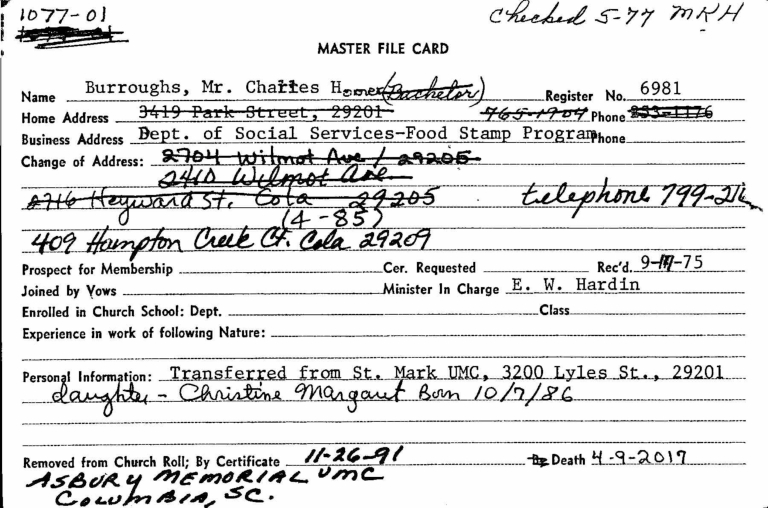 1077-01
Checked 5-77 MKH
MASTER FILE CARD
Name Burroughs, Mr. Charles Homer (Bachelor) Register No. 6981
Home Address 3419 Park Street, 29201 765-1704 Phone 253-1176
Business Address Dept. of Social Services-Food Stamp Program Phone
Change of Address: 2704 Wilmot Ave / 29205
2410 Wilmot Ave
2716 Heyward St. Cola 29205 telephone 799-
(4-85)
409 Hampton Creek Ct. Cola 29209
Prospect for Membership Cer. Requested Rec'd. 9-17-75
Joined by Vows Minister In Charge E. W. Hardin
Enrolled in Church School: Dept. Class
Experience in work of following Nature:
Personal Information: Transferred from St. Mark UMC, 3200 Lyles St., 29201
daughter - Christine Margaret Born 10/7/86
Removed from Church Roll; By Certificate 11-26-91 By Death 4-9-2017
ASBURY MEMORIAL UMC
COLUMBIA, SC.